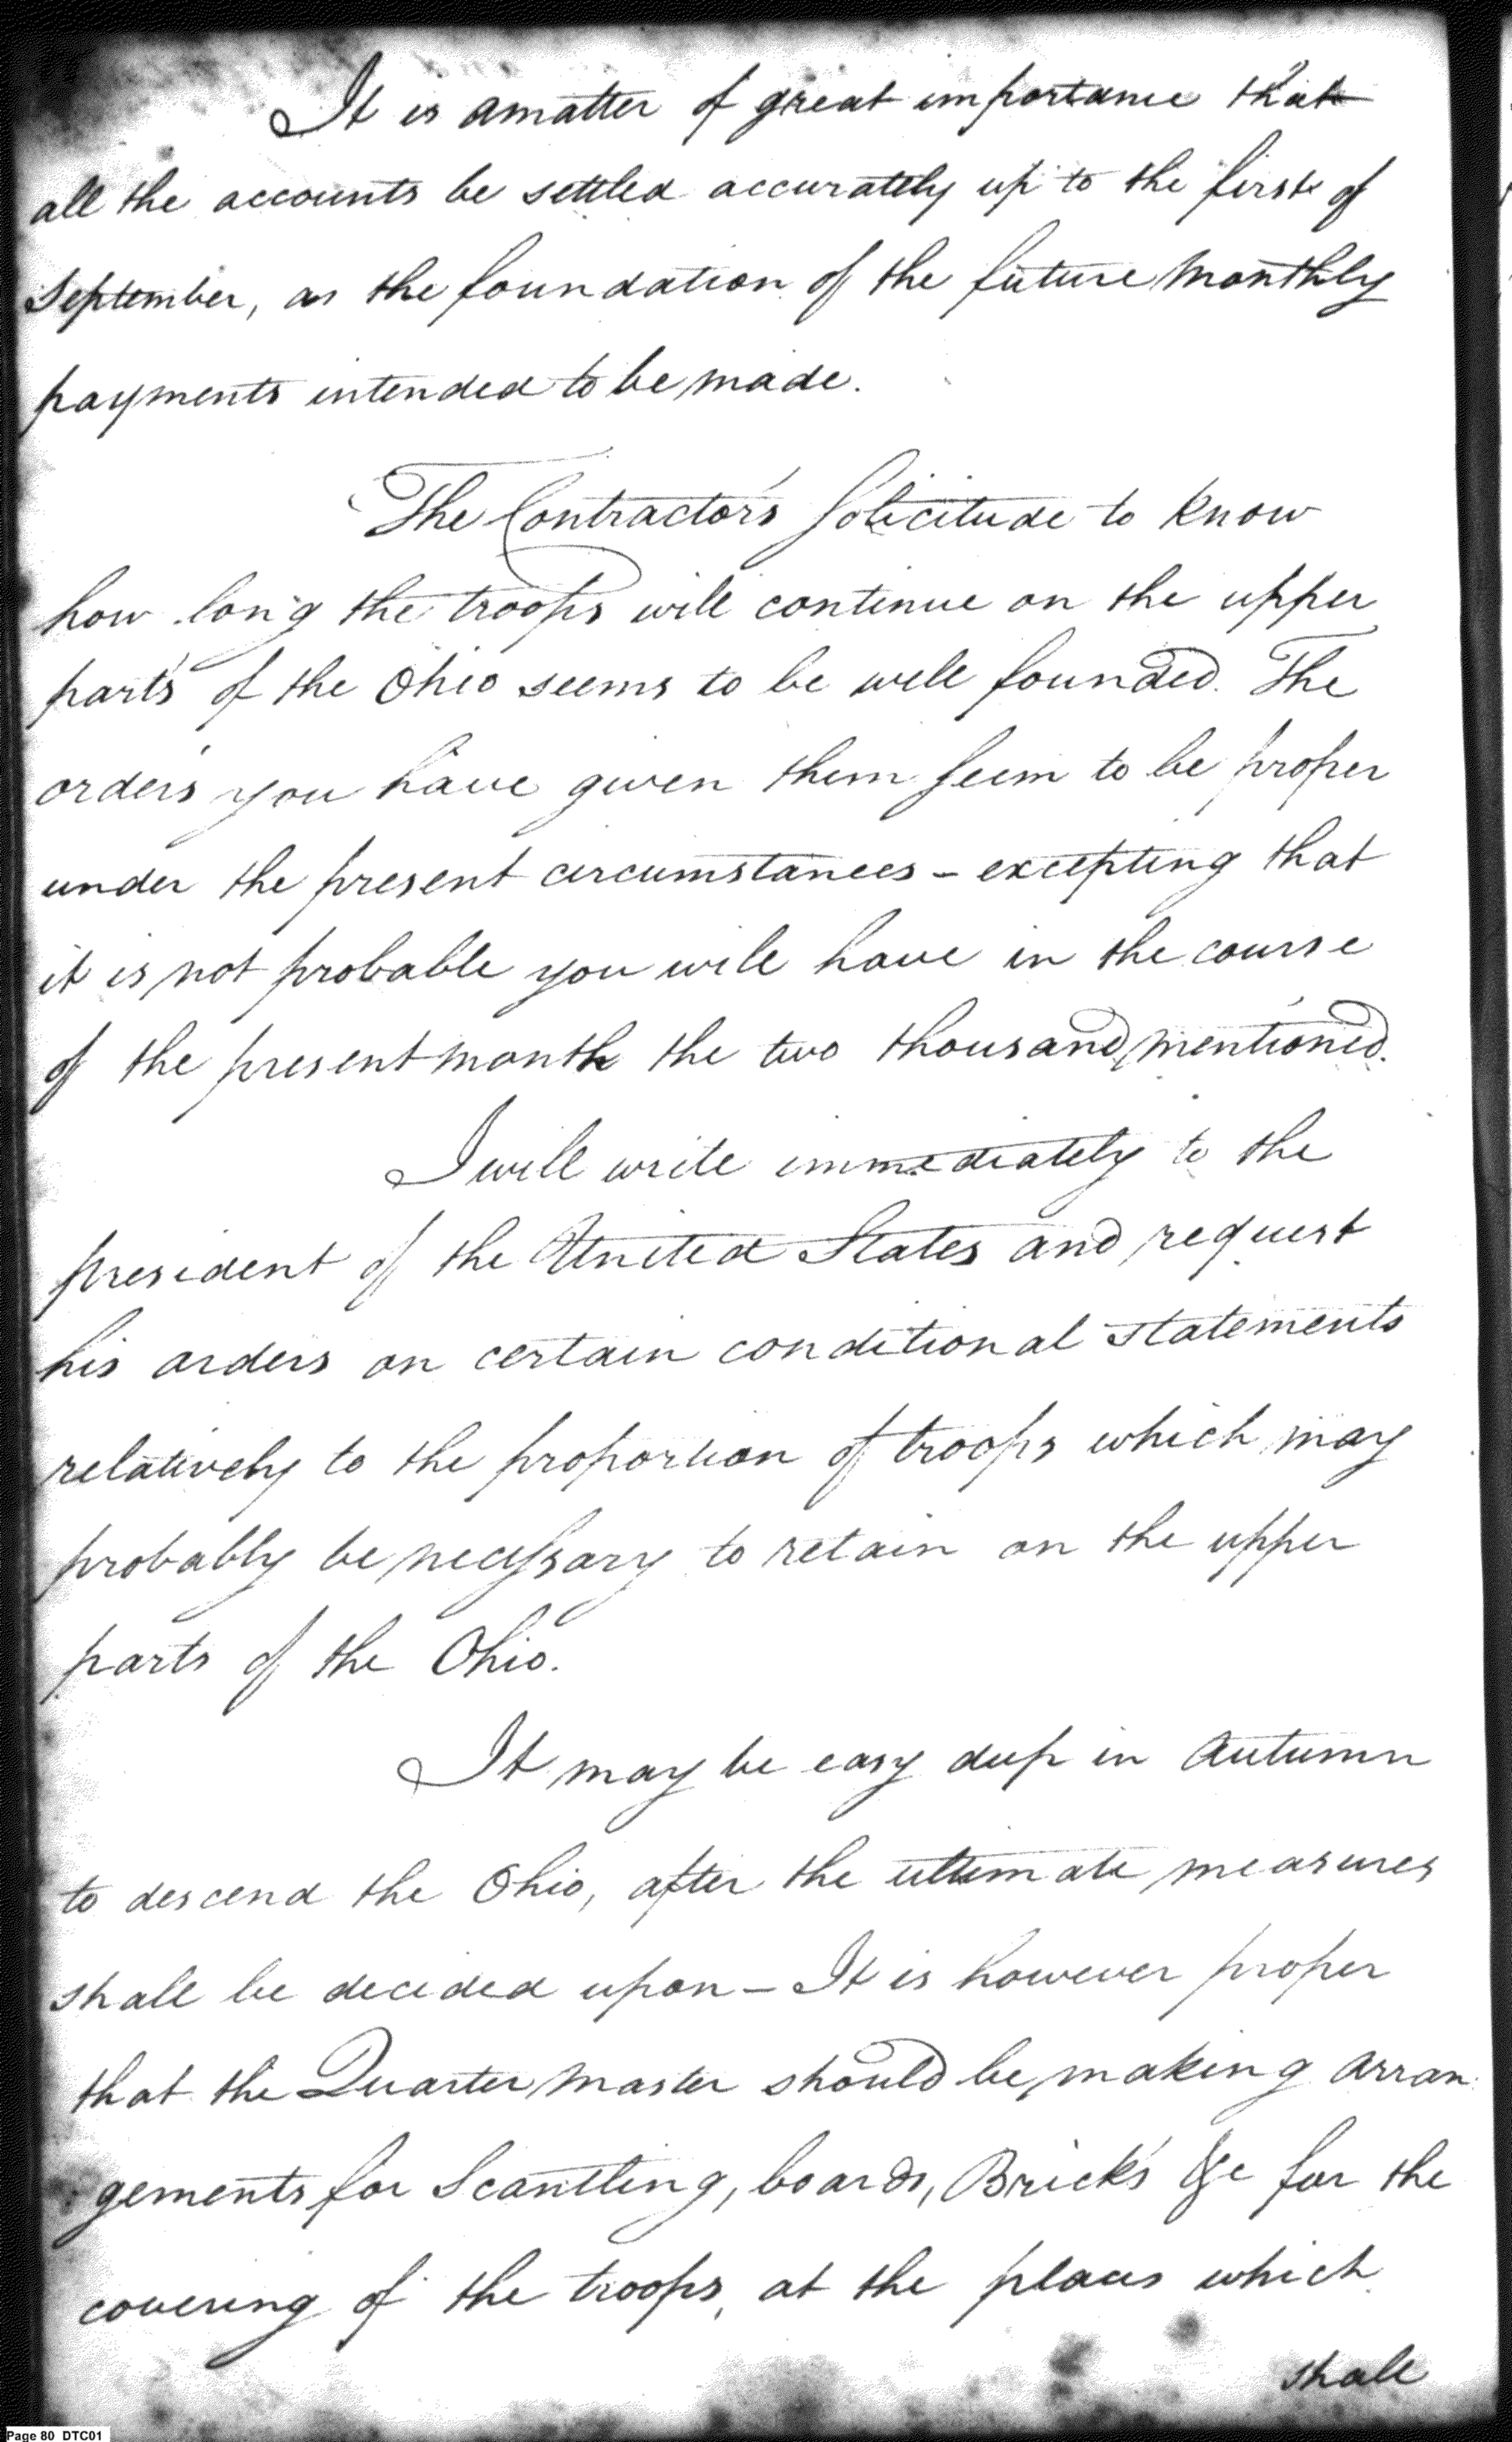 It is a matter of great importance that
all the accounts be settled accurately up to the first of
September, as the foundation of the future monthly
payments intended to be made.
The Contractors Solicitude to know
how long the troops will continue on the upper
parts of the Ohio seems to be well founded. The
orders you have given them seem to be proper
under the present circumstances - excepting that
it is not probable you will have in the course
of the present month the two thousand mentioned.
I will write immediately to the
president of the United States and request
his orders on certain conditional statements
relatively to the proportion of troops which may
probably be necessary to retain on the upper
parts of the Ohio.
It may be easy deep in Autumn
to descend the Ohio, after the ultimate measures
shall be decided upon - It is however proper
that the Quarter Master should be making arran
gements for Scantling, boards, Bricks &c for the
covering of the troops, at the places which
shall
Page 80 DTC01